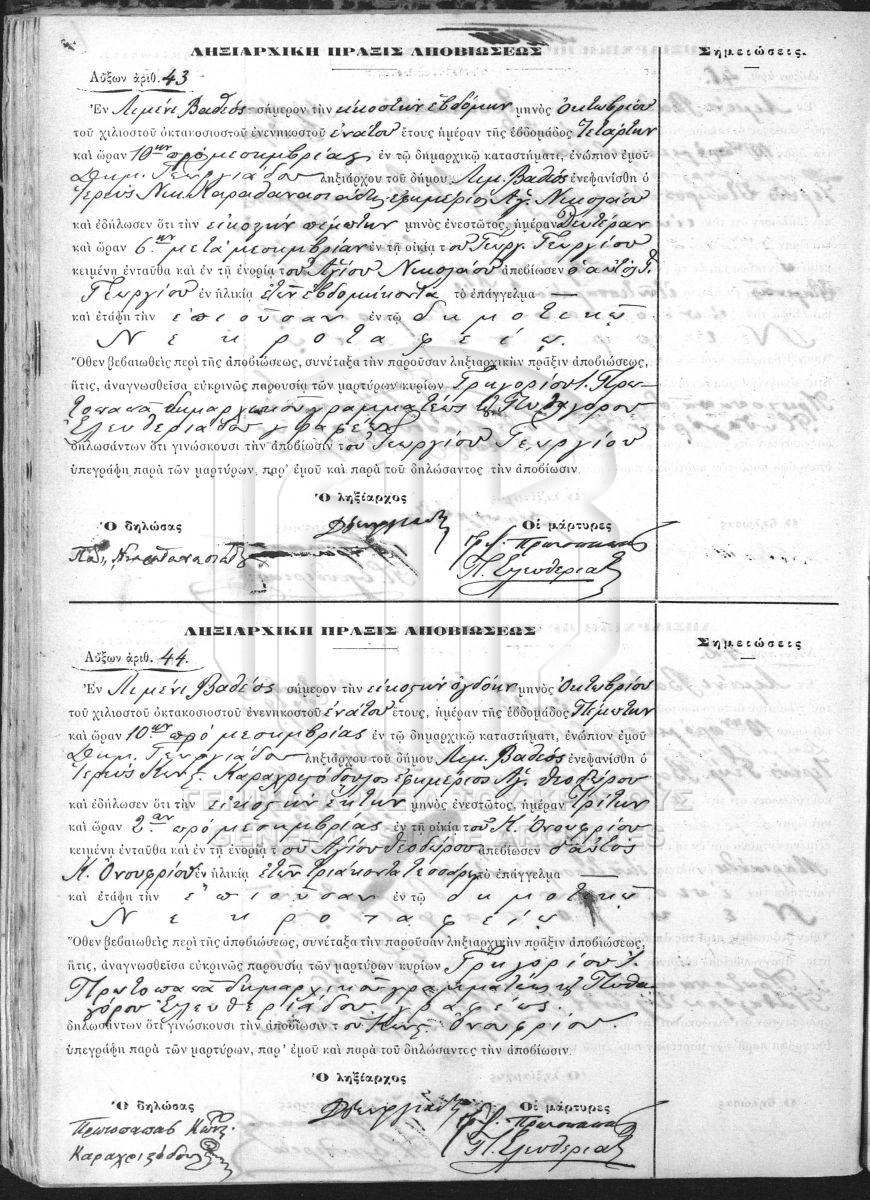 ΛΗΞΙΑΡΧΙΚΗ ΠΡΑΞΙΣ ΑΠΟΒΙΩΣΕΩΣ
Σημειώσεις.
Αὔξων ἀριθ. 43
Ἐν Λιμένι Βαθέος σήμερον τὴν εἰκοστὴν ἑβδόμην μηνὸς Ὀκτωβρίου
τοῦ χιλιοστοῦ ὀκτακοσιοστοῦ ἐνενηκοστοῦ ἐνάτου ἔτους ἡμέραν τῆς ἑβδομάδος Τετάρτην
καὶ ὥραν 10ην πρὸ μεσημβρίας ἐν τῷ δημαρχικῷ καταστήματι, ἐνώπιον ἐμοῦ
Δημ. Γεωργιάδου ληξιάρχου τοῦ δήμου Λιμ. Βαθέος ἐνεφανίσθη ὁ
Ἱερεὺς Νικ. ἐφημέριος Ἁγ. Νικολάου
καὶ ἐδήλωσεν ὅτι τὴν εἰκοστὴν πέμπτην μηνὸς ἐνεστῶτος, ἡμέραν Δευτέραν
καὶ ὥραν 6ην μετὰ μεσημβρίαν ἐν τῇ οἰκίᾳ τοῦ Γεωργ. Γεωργίου
κειμένῃ ἐνταῦθα καὶ ἐν τῇ ἐνορίᾳ τοῦ Ἁγίου Νικολάου ἀπεβίωσεν ὁ αὐτὸς Γ.
Γεωργίου ἐν ἡλικίᾳ ἐτῶν ἑβδομήκοντα τὸ ἐπάγγελμα —
καὶ ἐτάφη τὴν ἐπιοῦσαν ἐν τῷ δημοτικῷ
Νεκροταφείῳ.
Ὅθεν βεβαιωθεὶς περὶ τῆς ἀποβιώσεως, συνέταξα τὴν παροῦσαν ληξιαρχικὴν πρᾶξιν ἀποβιώσεως,
ἥτις, ἀναγνωσθεῖσα εὐκρινῶς παρουσίᾳ τῶν μαρτύρων κυρίων Γρηγορίου Ι. Πρω-
τοπαπᾶ δημαρχικοῦ γραμματέως κ Πυθαγόρου
Ἐλευθεριάδου γραφέως
δηλωσάντων ὅτι γινώσκουσι τὴν ἀποβίωσιν τοῦ Γεωργίου Γεωργίου
ὑπεγράφη παρὰ τῶν μαρτύρων, παρ' ἐμοῦ καὶ παρὰ τοῦ δηλώσαντος τὴν ἀποβίωσιν.
Ὁ ληξίαρχος
Ὁ δηλώσας
Οἱ μάρτυρες
Δ Γεωργιάδης
Γ. Ι. Πρωτοπαπᾶς
Π. Ἐλευθεριάδης
ΛΗΞΙΑΡΧΙΚΗ ΠΡΑΞΙΣ ΑΠΟΒΙΩΣΕΩΣ
Σημειώσεις
Αὔξων ἀριθ. 44.
Ἐν Λιμένι Βαθέος σήμερον τὴν εἰκοστὴν ὀγδόην μηνὸς Ὀκτωβρίου
τοῦ χιλιοστοῦ ὀκτακοσιοστοῦ ἐνενηκοστοῦ ἐνάτου ἔτους, ἡμέραν τῆς ἑβδομάδος Πέμπτην
καὶ ὥραν 10ην πρὸ μεσημβρίας ἐν τῷ δημαρχικῷ καταστήματι, ἐνώπιον ἐμοῦ
Δημ. Γεωργιάδου ληξιάρχου τοῦ δήμου Λιμ. Βαθέος ἐνεφανίσθη ὁ
Ἱερεὺς Κωνστ. Καραχριστόδουλος ἐφημέριος Ἁγ. Θεοδώρου
καὶ ἐδήλωσεν ὅτι τὴν εἰκοστὴν ἕκτην μηνὸς ἐνεστῶτος, ἡμέραν Τρίτην
καὶ ὥραν 2αν πρὸ μεσημβρίας ἐν τῇ οἰκίᾳ τοῦ Κ. Ὀνουφρίου
κειμένῃ ἐνταῦθα καὶ ἐν τῇ ἐνορίᾳ τοῦ Ἁγίου Θεοδώρου ἀπεβίωσεν ὁ αὐτὸς
Κ. Ὀνουφρίου ἐν ἡλικίᾳ ἐτῶν τριάκοντα τεσσάρων τὸ ἐπάγγελμα —
καὶ ἐτάφη τὴν ἐπιοῦσαν ἐν τῷ δημοτικῷ
Νεκροταφείῳ
Ὅθεν βεβαιωθεὶς περὶ τῆς ἀποβιώσεως, συνέταξα τὴν παροῦσαν ληξιαρχικὴν πρᾶξιν ἀποβιώσεως,
ἥτις, ἀναγνωσθεῖσα εὐκρινῶς παρουσίᾳ τῶν μαρτύρων κυρίων Γρηγορίου Ι.
Πρωτοπαπᾶ δημαρχικοῦ γραμματέως κ Πυθα-
γόρου Ἐλευθεριάδου γραφέως.
δηλωσάντων ὅτι γινώσκουσι τὴν ἀποβίωσιν τοῦ Κωνστ. Ὀνουφρίου.
ὑπεγράφη παρὰ τῶν μαρτύρων, παρ' ἐμοῦ καὶ παρὰ τοῦ δηλώσαντες τὴν ἀποβίωσιν.
Ὁ ληξίαρχος
Ὁ δηλώσας
Οἱ μάρτυρες
Δ Γεωργιάδης
Γ. Ι. Πρωτοπαπᾶς
Π. Ἐλευθεριάδης
Πρωτοπαπας Κωνστ.